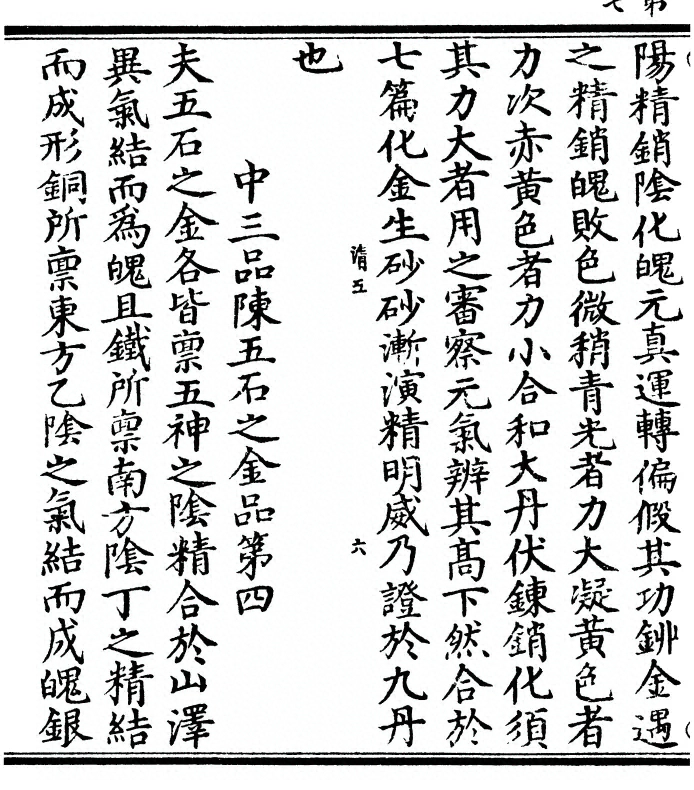 陽精銷陰化魄元真運轉偏假其功鉚金遇
之精銷魄敗色微稍青光者力大凝黃色者
力次赤黃色者力小合和大丹伏鍊銷化須
其力大者用之審察元氣辨其高下然合於
七篇化金生砂砂漸演精明威乃證於九丹
清五
六
也
中三品陳五石之金品第四
夫五石之金各皆禀五神之陰精合於山澤
異氣結而為魄且鐵所禀南方陰丁之精結
而成形銅所禀東方乙陰之氣結而成魄銀